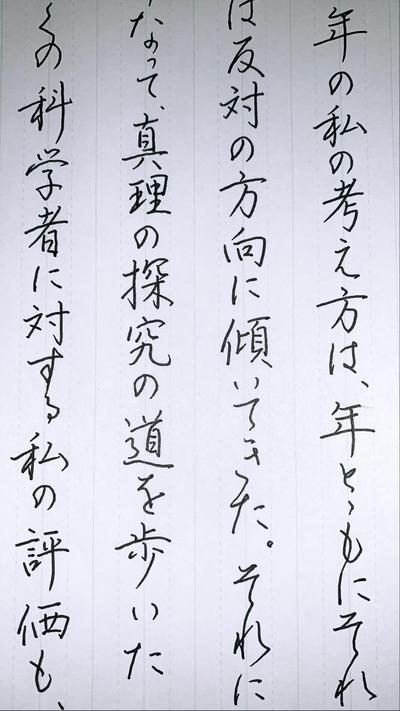 年の私の考え方は、年とゝもにそれ
は反対の方向に傾いてきた。それに
なって、真理の探究の道を歩いた
くの科学者に対する私の評価も、